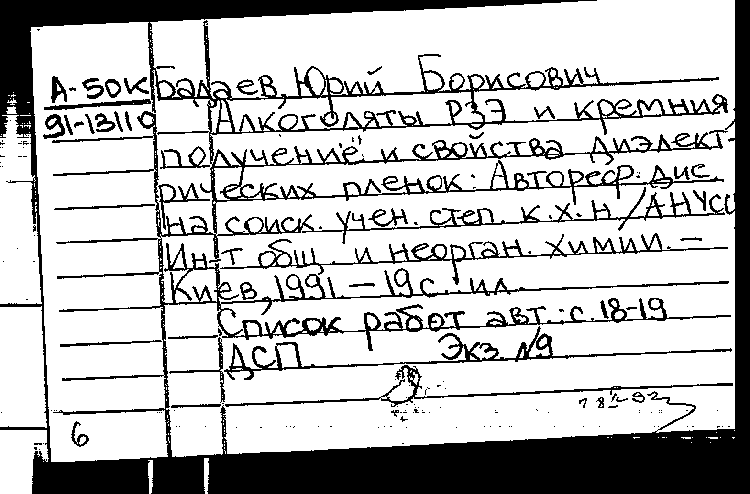 А-50К Балаев, Юрий Борисович
91-13110 Алкоголяты РЗЭ и кремния,
получение и свойства диэлект-
рических пленок: Автореф. дис.
на соиск. учен. степ. к.х.н./АНУССР
Ин-т общ. и неорган. химии. –
Киев, 1991. – 19с.: ил.
Список работ авт.: с. 18-19
ДСП. Экз. №9
6